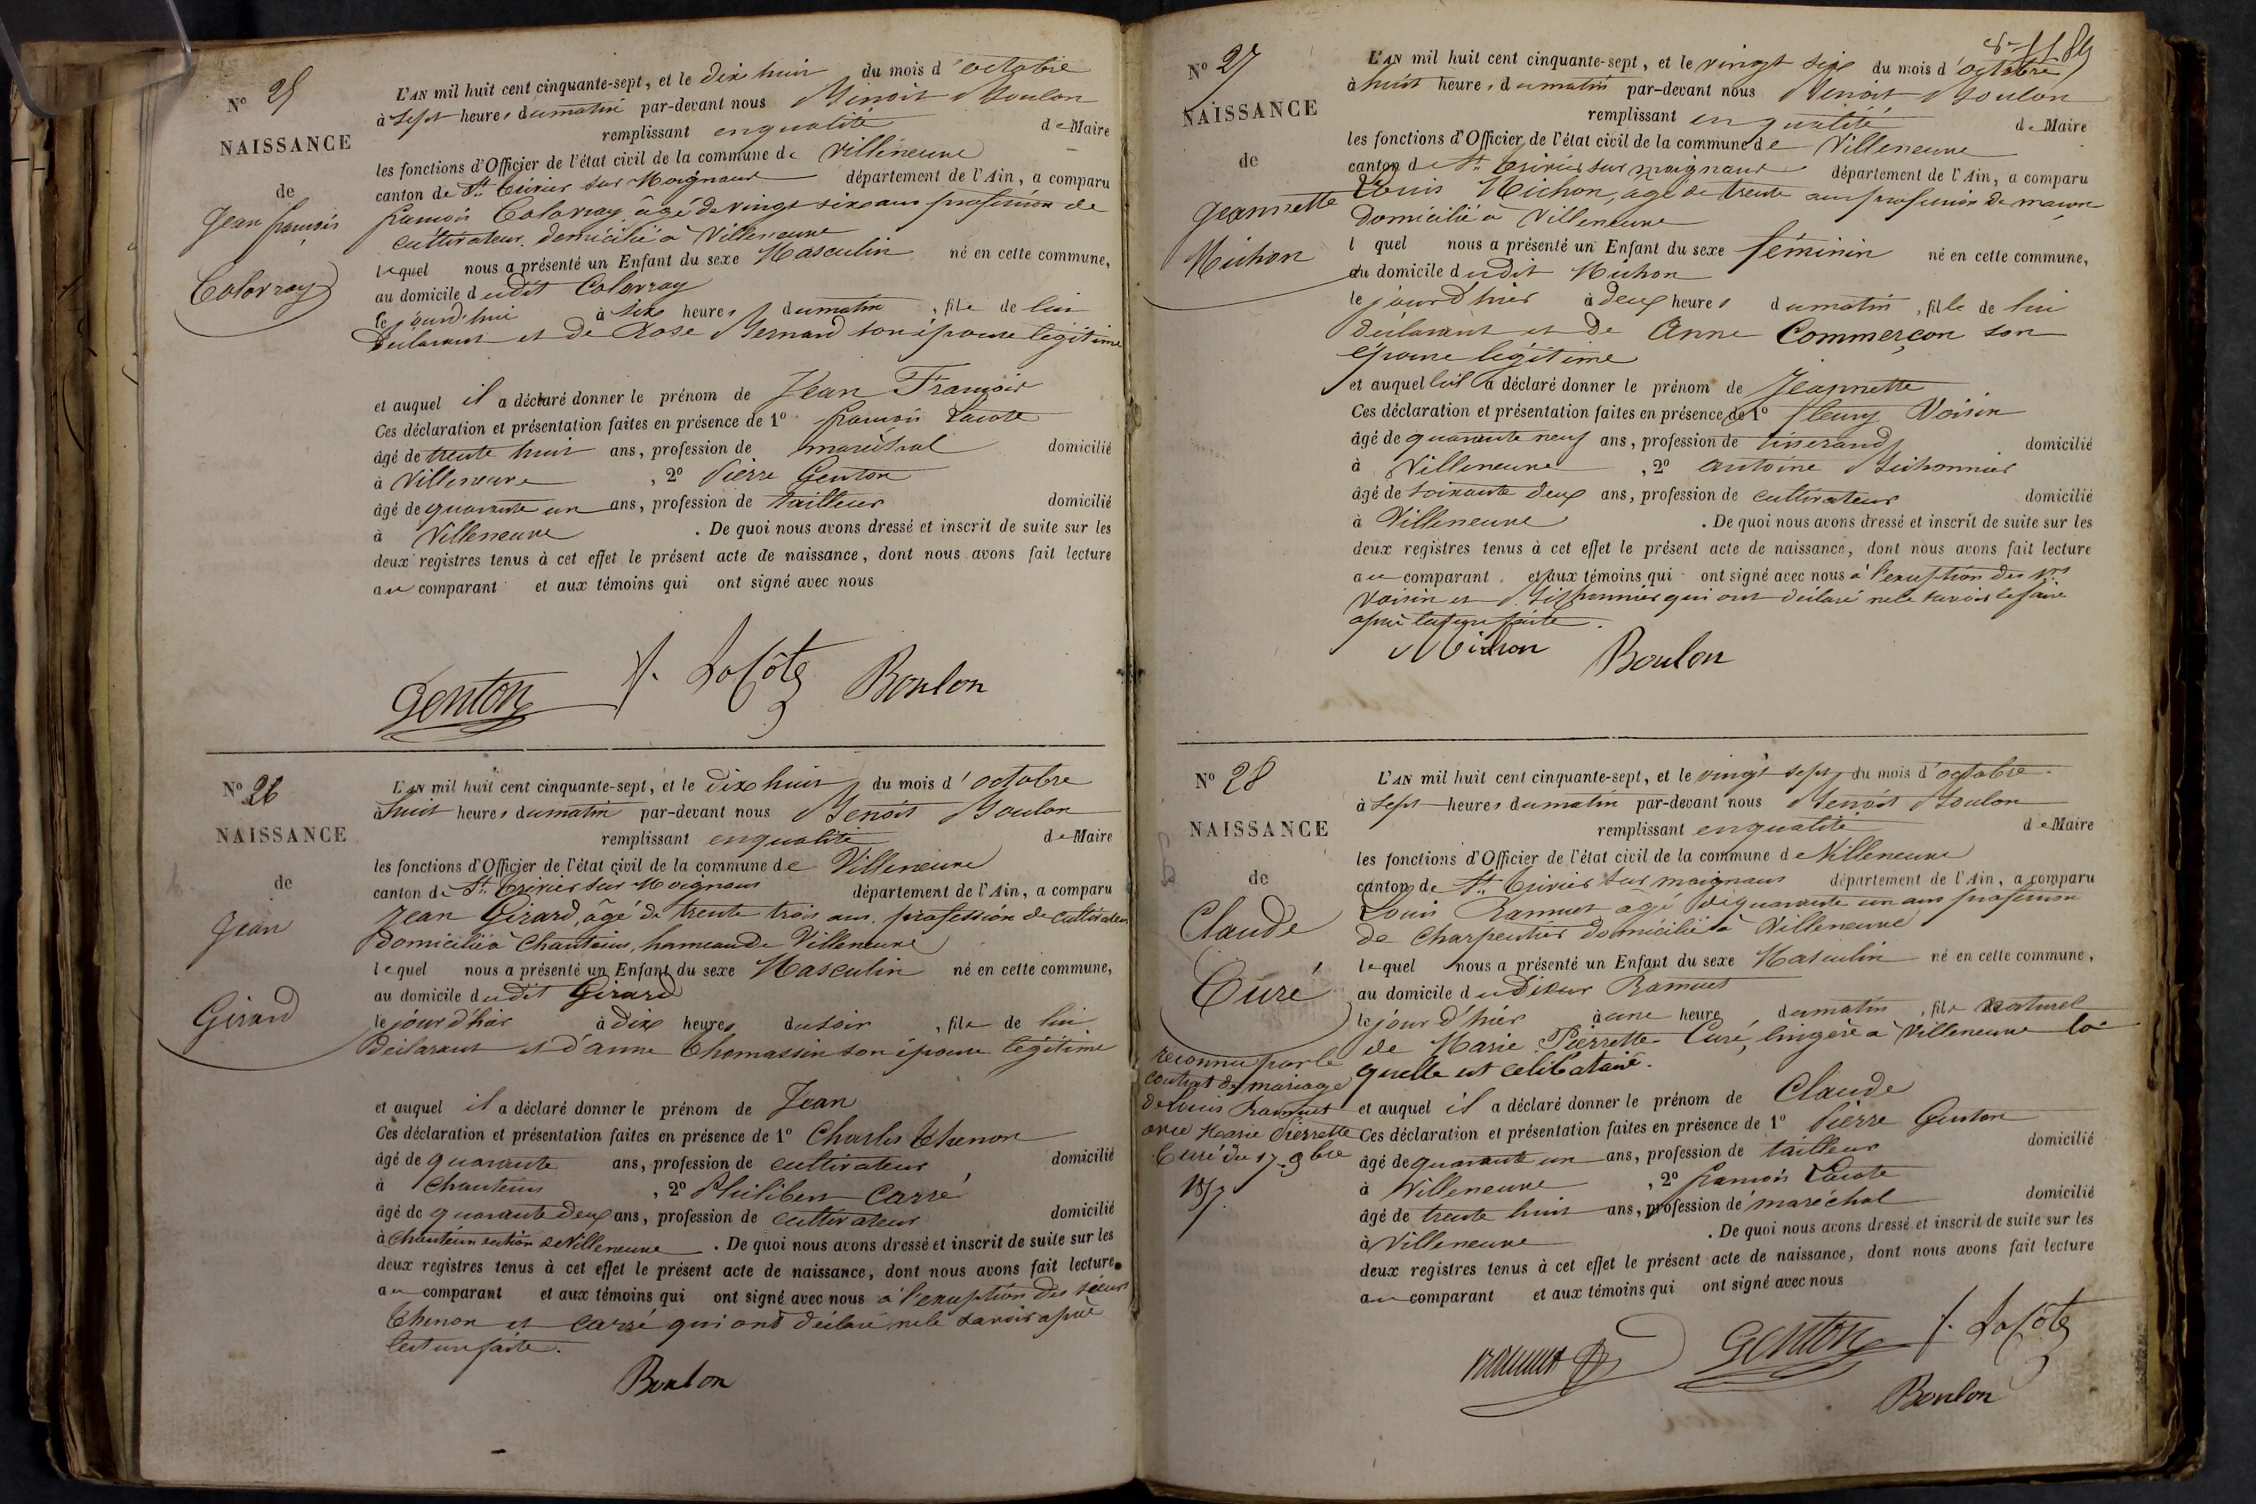 N.º 25
NAISSANCE
de
Jean françois
Colovray
L'AN mil huit cent cinquante-sept, et le dix huit du mois d'octobre
à sept heures du matin par-devant nous Benoit Boulon
remplissant en qualité de Maire
les fonctions d'Officier de l'état civil de la commune de Villeneuve
canton de St. Trivier sur Moignans département de l'Ain, a comparu
françois Colovray, âgé de vingt six ans profession de
cultivateur domicilié à Villeneuve
lequel nous a présenté un Enfant du sexe Masculin né en cette commune,
au domicile dudit Colovray
le jourd'hui à six heures du matin, fils de lui
déclarant et de Rose Bernard son épouse légitime
et auquel il a déclaré donner le prénom de Jean François
Ces déclaration et présentation faites en présence de 1º françois Lacote
âgé de trente huit ans, profession de maréchal domicilié
à Villeneuve, 2º Pierre Genton
âgé de quarante un ans, profession de tailleur domicilié
à Villeneuve. De quoi nous avons dressé et inscrit de suite sur les
deux registres tenus à cet effet le présent acte de naissance, dont nous avons fait lecture
au comparant et aux témoins qui ont signé avec nous
Genton f. LaCôte Boulon
N.º 26
NAISSANCE
de
Jean
Girard
L'AN mil huit cent cinquante-sept, et le dix huit du mois d'octobre
à huit heures du matin par-devant nous Benoit Boulon
remplissant en qualité de Maire
les fonctions d'Officier de l'état civil de la commune de Villeneuve
canton de St. Trivier sur Moignans département de l'Ain, a comparu
Jean Girard, âgé de trente trois ans, profession de cultivateur
domicilié à Chanteins, hameau de Villeneuve
lequel nous a présenté un Enfant du sexe Masculin né en cette commune,
au domicile dudit Girard
le jour d'hier à dix heures du soir, fils de lui
déclarant et d'anne Thomassin son épouse légitime
et auquel il a déclaré donner le prénom de Jean
Ces déclaration et présentation faites en présence de 1º Charles Thenon
âgé de quarante ans, profession de cultivateur domicilié
à Chanteins, 2º Philibert Carré
âgé de quarante deux ans, profession de cultivateur domicilié
à Chantein section de Villeneuve. De quoi nous avons dressé et inscrit de suite sur les
deux registres tenus à cet effet le présent acte de naissance, dont nous avons fait lecture
au comparant et aux témoins qui ont signé avec nous à l'exception des sieurs
Thenon et Carré qui ont déclaré ne le savoir après
lecture faite.
Boulon
N.º 27
NAISSANCE
de
Jeannette
Michon
L'AN mil huit cent cinquante-sept, et le vingt six du mois d'octobre
à huit heures du matin par-devant nous Benoit Boulon
remplissant en qualité de Maire
les fonctions d'Officier de l'état civil de la commune de Villeneuve
canton de St. Trivier sur moignans département de l'Ain, a comparu
Louis Michon, âgé de trente ans profession de maçon
domicilié à Villeneuve
l quel nous a présenté un Enfant du sexe féminin né en cette commune,
au domicile dudit Michon
le jour d'hier à deux heures du matin, fille de lui
déclarant et de Anne Commerçon son
épouse légitime
et auquel il a déclaré donner le prénom de Jeannette
Ces déclaration et présentation faites en présence de 1º fleury Voisin
âgé de quarante neuf ans, profession de tisserand domicilié
à Villeneuve, 2º antoine Bichonnier
âgé de soixante deux ans, profession de cultivateur domicilié
à Villeneuve. De quoi nous avons dressé et inscrit de suite sur les
deux registres tenus à cet effet le présent acte de naissance, dont nous avons fait lecture
au comparant et aux témoins qui ont signé avec nous à l'exception des Srs
Voisin et Bichonnier qui ont déclaré ne le savoir le faire
après lecture faite.
Michon Boulon
N.º 28
NAISSANCE
de
Claude
Curé
reconnu par le
contrat de mariage
de Louis Ramuet
avec Marie Pierrette
Curé du 17 9bre
1857.
L'AN mil huit cent cinquante-sept, et le vingt sept du mois d'octobre
à sept heures du matin par-devant nous Benoit Boulon
remplissant en qualité de Maire
les fonctions d'Officier de l'état civil de la commune de Villeneuve
canton de St. Trivier sur moignans département de l'Ain, a comparu
Louis Ramuet agé de quarante un ans profession
de charpentier domicilié à Villeneuve
lequel nous a présenté un Enfant du sexe Masculin né en cette commune,
au domicile dudit sieur Ramuet
le jour d'hier à une heure du matin, fils naturel
de Marie Pierrette Curé, lingère à Villeneuve la-
quelle est célibataire.
et auquel il a déclaré donner le prénom de Claude
Ces déclaration et présentation faites en présence de 1º Pierre Genton
âgé de quarante un ans, profession de tailleur domicilié
à Villeneuve, 2º françois Lacote
âgé de trente huit ans, profession de maréchal domicilié
à Villeneuve. De quoi nous avons dressé et inscrit de suite sur les
deux registres tenus à cet effet le présent acte de naissance, dont nous avons fait lecture
au comparant et aux témoins qui ont signé avec nous
ramuet Genton f. LaCôte
Boulon